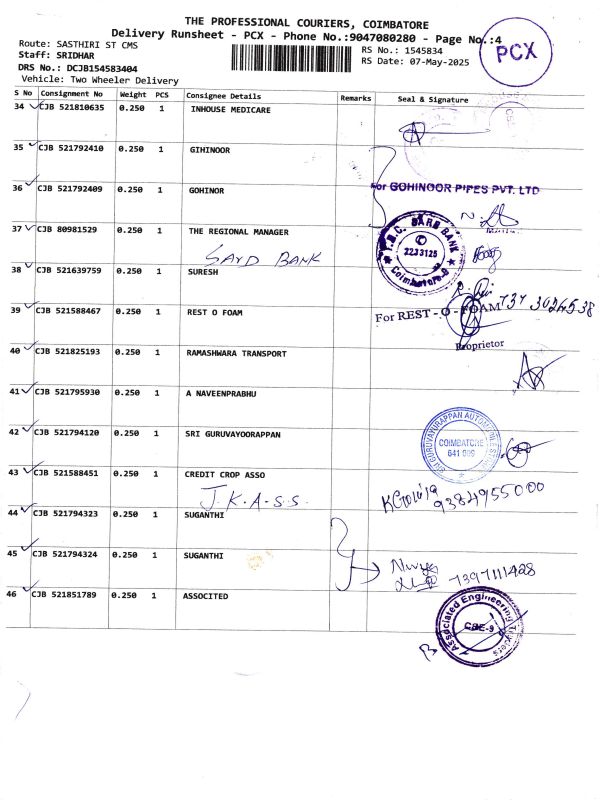 THE PROFESSIONAL COURIERS, COIMBATORE
Delivery Runsheet - PCX - Phone No.:9047080280 - Page No.:4
PCX
Route: SASTHIRI ST CMS
Staff: SRIDHAR
DRS No.: DCJB154583404
Vehicle: Two Wheeler Delivery
RS No.: 1545834
RS Date: 07-May-2025
S No Consignment No Weight PCS Consignee Details Remarks Seal & Signature
34 CJB 521810635 0.250 1 INHOUSE MEDICARE
35 CJB 521792410 0.250 1 GIHINOOR
36 CJB 521792409 0.250 1 GOHINOR
For GOHINOOR PIPES PVT. LTD
37 CJB 80981529 0.250 1 THE REGIONAL MANAGER
SARD BANK
2233125
Coimbatore-9
38 CJB 521639759 0.250 1 SURESH
39 CJB 521588467 0.250 1 REST O FOAM
For REST-O-FOAM 737 3024538
Proprietor
40 CJB 521825193 0.250 1 RAMASHWARA TRANSPORT
41 CJB 521795930 0.250 1 A NAVEENPRABHU
42 CJB 521794120 0.250 1 SRI GURUVAYOORAPPAN
SRI GURUVAYURAPPAN AUTOMOBILES
COIMBATORE
641 009
43 CJB 521588451 0.250 1 CREDIT CROP ASSO
J.K.A.S.S.
9384955000
44 CJB 521794323 0.250 1 SUGANTHI
45 CJB 521794324 0.250 1 SUGANTHI
7397111428
46 CJB 521851789 0.250 1 ASSOCITED
Associated Engineering
CBE-9